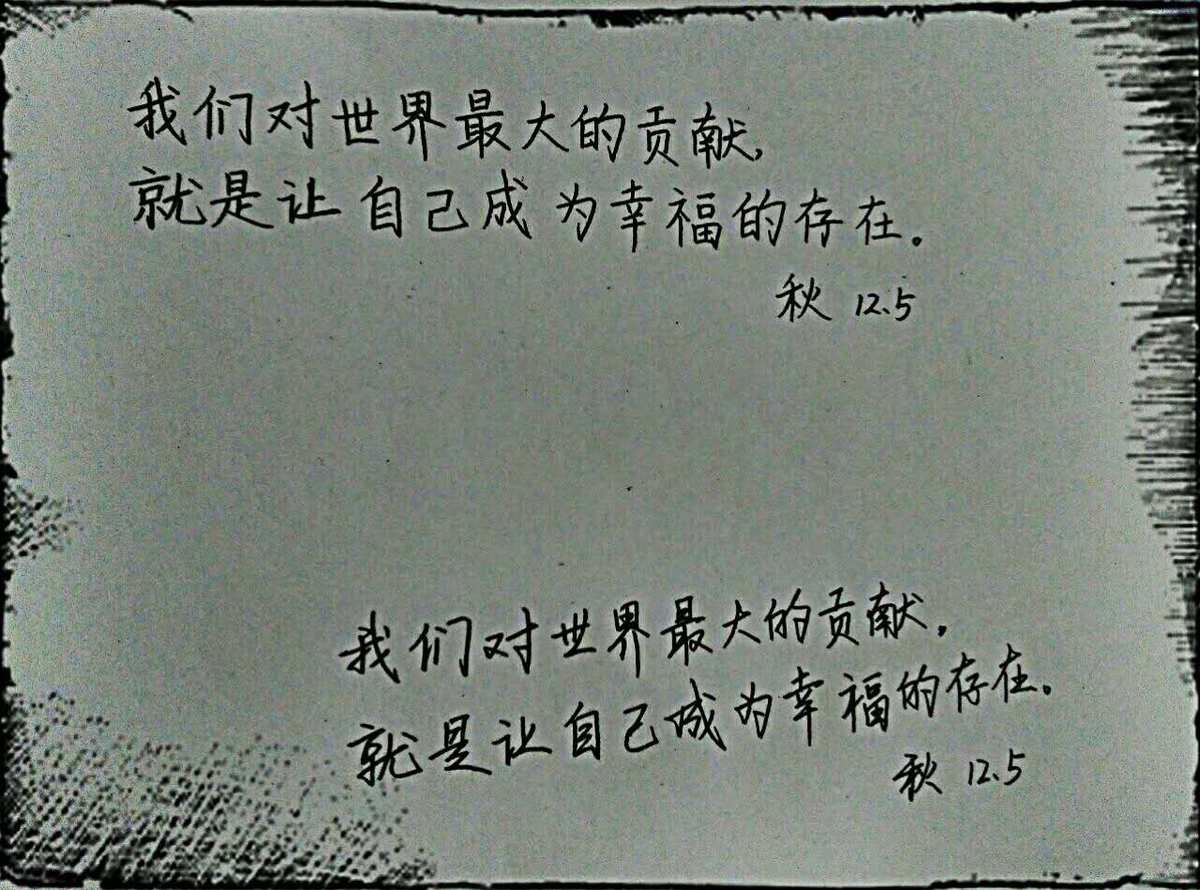 我们对世界最大的贡献,
就是让自己成为幸福的存在。
秋 12.5
我们对世界最大的贡献,
就是让自己成为幸福的存在。
秋 12.5